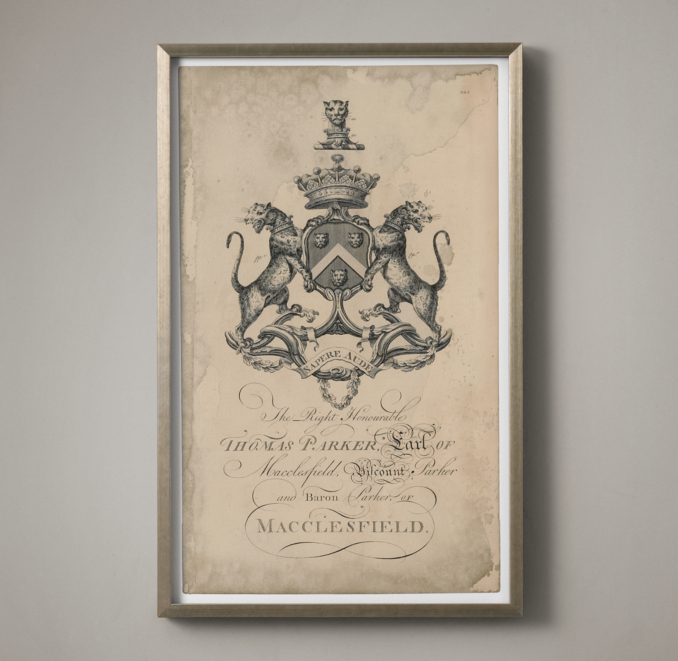 SAPERE AUDE
The Right Honourable
THOMAS PARKER, Earl OF
Macclesfield, Viscount Parker
and Baron Parker OF
MACCLESFIELD.